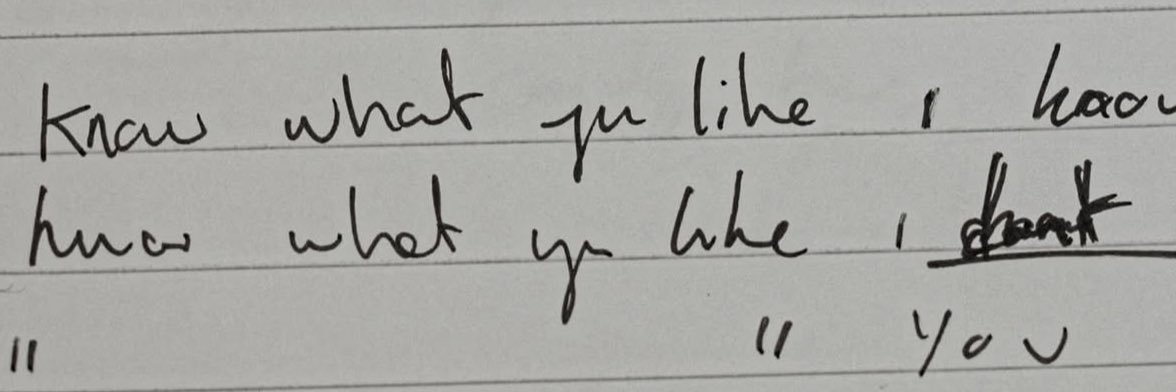 Know what you like I know
know what you like I don't
" " You